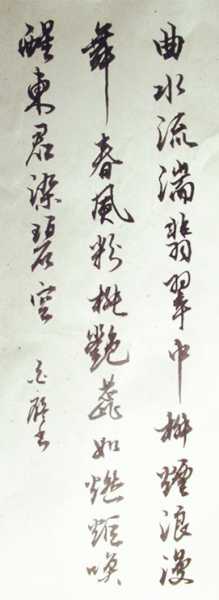 曲水流湍翡翠中柳煙浪漫
舞春風粉桃艷蕊如燃炬喚
醒東君染碧空